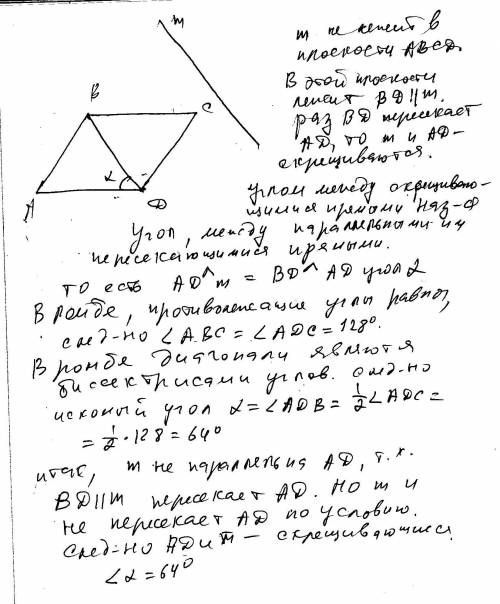 m
B
C
α
A
D
m не лежит в
плоскости ABCD.
В этой плоскости
лежит BD||m.
раз BD пересекает
AD, то m и AD-
скрещиваются.
углом между скрещиваю-
щимися прямыми наз-ся
угол, между параллельными им
пересекающимися прямыми.
то есть AD^m = BD^AD угол α
В ромбе, противолежащие углы равны,
след-но ∠ABC = ∠ADC = 128°.
В ромбе диагонали являются
биссектрисами углов. След-но
искомый угол α = ∠ADB = 1/2 ∠ADC =
= 1/2 · 128 = 64°
итак, m не параллельна AD, т.к.
BD||m пересекает AD. Но m и
не пересекает AD по условию.
След-но AD и m - скрещивающиеся.
∠α = 64°